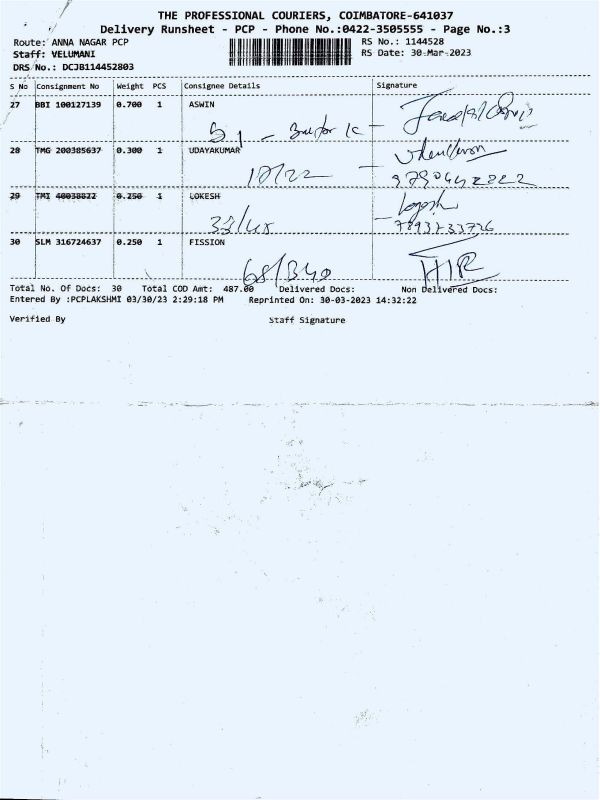 THE PROFESSIONAL COURIERS, COIMBATORE-641037
Delivery Runsheet - PCP - Phone No.:0422-3505555 - Page No.:3
Route: ANNA NAGAR PCP RS No.: 1144528
Staff: VELUMANI RS Date: 30-Mar-2023
DRS No.: DCJB114452803
S No Consignment No Weight PCS Consignee Details Signature
27 BBI 100127139 0.700 1 ASWIN
28 TMG 200385637 0.300 1 UDAYAKUMAR
18/22
9790442822
29 TMI 40038822 0.250 1 LOKESH
33/48
7893733736
30 SLM 316724637 0.250 1 FISSION
68/340
Total No. Of Docs: 30 Total COD Amt: 487.00 Delivered Docs: Non Delivered Docs:
Entered By :PCPLAKSHMI 03/30/23 2:29:18 PM Reprinted On: 30-03-2023 14:32:22
Verified By Staff Signature